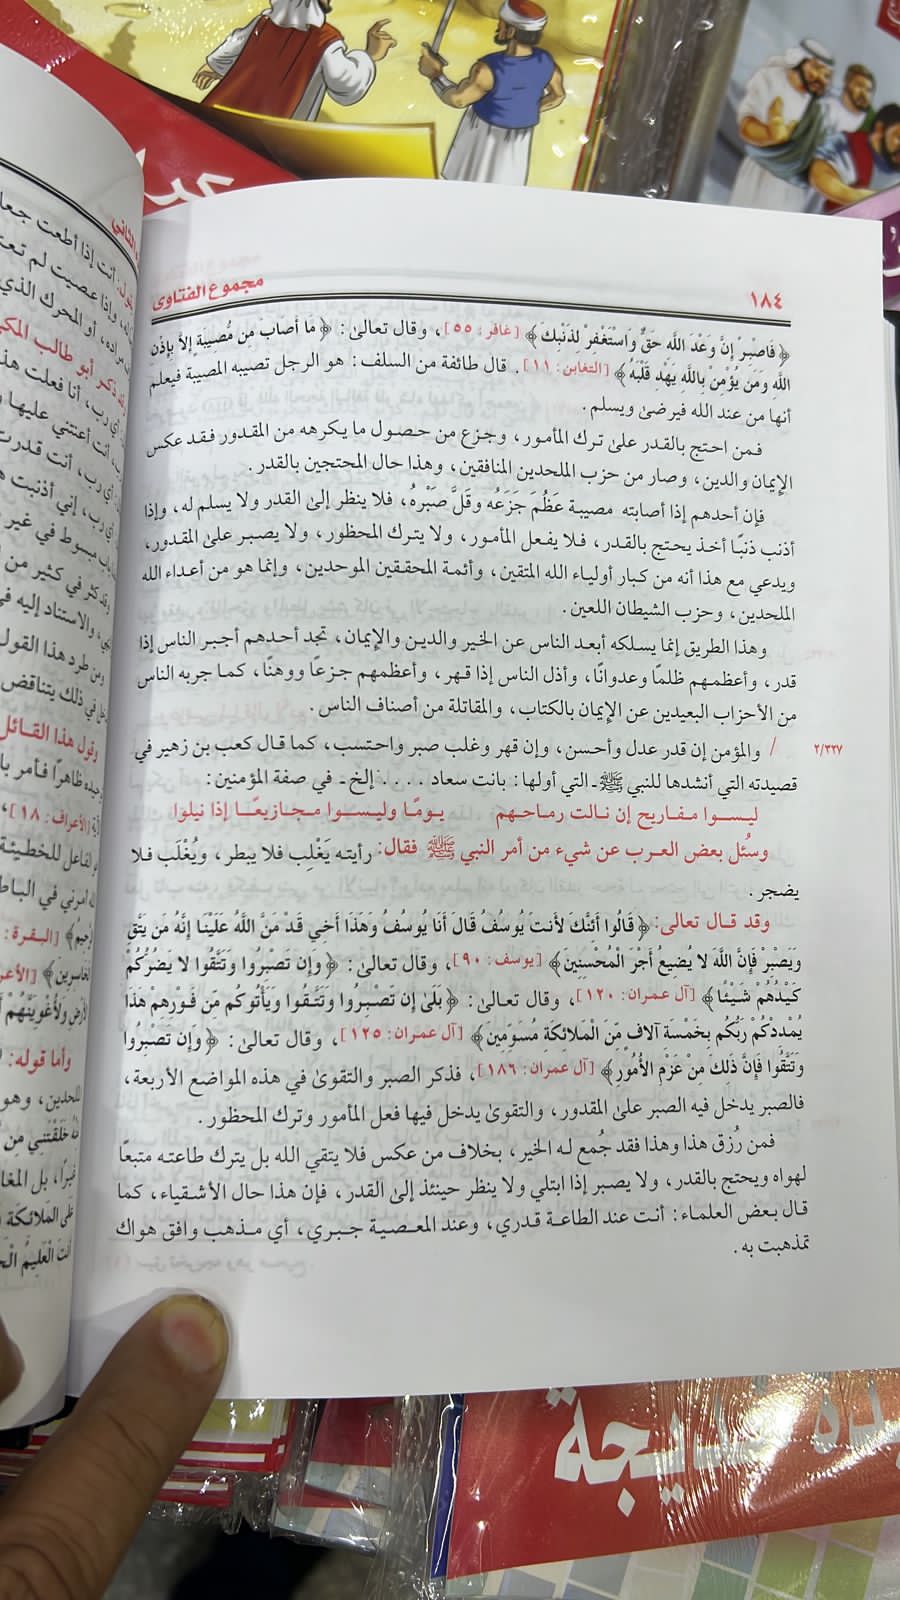 ١٨٤
مجموع الفتاوى
﴿فَاصْبِرْ إِنَّ وَعْدَ اللَّهِ حَقٌّ وَاسْتَغْفِرْ لِذَنْبِكَ﴾ [غافر: ٥٥]، وقال تعالىٰ: ﴿مَا أَصَابَ مِن مُّصِيبَةٍ إِلاَّ بِإِذْنِ
اللَّهِ وَمَن يُؤْمِنْ بِاللَّهِ يَهْدِ قَلْبَهُ﴾ [التغابن: ١١]. قال طائفة من السلف: هو الرجل تصيبه المصيبة فيعلم
أنها من عند الله فيرضىٰ ويسلم.
فمن احتج بالقدر علىٰ ترك المأمور، وجزع من حصول ما يكرهه من المقدور فقد عكس
الإيمان والدين، وصار من حزب الملحدين المنافقين، وهذا حال المحتجين بالقدر.
فإن أحدهم إذا أصابته مصيبة عَظُمَ جَزَعُه وقَلَّ صَبْرهُ، فلا ينظر إلىٰ القدر ولا يسلم له، وإذا
أذنب ذنبًا أخذ يحتج بالقدر، فلا يفعل المأمور، ولا يترك المحظور، ولا يصبر علىٰ المقدور،
ويدعي مع هذا أنه من كبار أولياء الله المتقين، وأئمة المحققين الموحدين، وإنما هو من أعداء الله
الملحدين، وحزب الشيطان اللعين.
وهذا الطريق إنما يسلكه أبعد الناس عن الخير والدين والإيمان، تجد أحدهم أجبر الناس إذا
قدر، وأعظمهم ظلمًا وعدوانًا، وأذل الناس إذا قهر، وأعظمهم جزعًا ووهنًا، كما جربه الناس
من الأحزاب البعيدين عن الإيمان بالكتاب، والمقاتلة من أصناف الناس.
٢/٣٢٧ / والمؤمن إن قدر عدل وأحسن، وإن قهر وغلب صبر واحتسب، كما قال كعب بن زهير في
قصيدته التي أنشدها للنبي ﷺ ـ التي أولها: بانت سعاد .... إلخ ـ في صفة المؤمنين:
ليسوا مفاريح إن نالت رماحهم يومًا وليسوا مجازيعًا إذا نيلوا
وسُئل بعض العرب عن شيء من أمر النبي ﷺ فقال: رأيته يَغْلِب فلا يبطر، ويُغْلَب فلا
يضجر.
وقد قال تعالى: ﴿قَالُوا أَئِنَّكَ لأَنتَ يُوسُفُ قَالَ أَنَا يُوسُفُ وَهَذَا أَخِي قَدْ مَنَّ اللَّهُ عَلَيْنَا إِنَّهُ مَن يَتَّقِ
وَيَصْبِرْ فَإِنَّ اللَّهَ لا يُضِيعُ أَجْرَ الْمُحْسِنِينَ﴾ [يوسف: ٩٠]، وقال تعالىٰ: ﴿وَإِن تَصْبِرُوا وَتَتَّقُوا لا يَضُرُّكُمْ
كَيْدُهُمْ شَيْئًا﴾ [آل عمران: ١٢٠]، وقال تعالىٰ: ﴿بَلَىٰ إِن تَصْبِرُوا وَتَتَّقُوا وَيَأْتُوكُم مِّن فَوْرِهِمْ هَذَا
يُمْدِدْكُمْ رَبُّكُم بِخَمْسَةِ آلافٍ مِّنَ الْمَلائِكَةِ مُسَوِّمِينَ﴾ [آل عمران: ١٢٥]، وقال تعالىٰ: ﴿وَإِن تَصْبِرُوا
وَتَتَّقُوا فَإِنَّ ذَلِكَ مِنْ عَزْمِ الأُمُورِ﴾ [آل عمران: ١٨٦]، فذكر الصبر والتقوىٰ في هذه المواضع الأربعة،
فالصبر يدخل فيه الصبر علىٰ المقدور، والتقوىٰ يدخل فيها فعل المأمور وترك المحظور.
فمن رُزق هذا وهذا فقد جُمع له الخير، بخلاف من عكس فلا يتقي الله بل يترك طاعته متبعًا
لهواه ويحتج بالقدر، ولا يصبر إذا ابتلي ولا ينظر حينئذ إلىٰ القدر، فإن هذا حال الأشقياء، كما
قال بعض العلماء: أنت عند الطاعة قدري، وعند المعصية جبري، أي مذهب وافق هواك
تمذهبت به.
خديجة